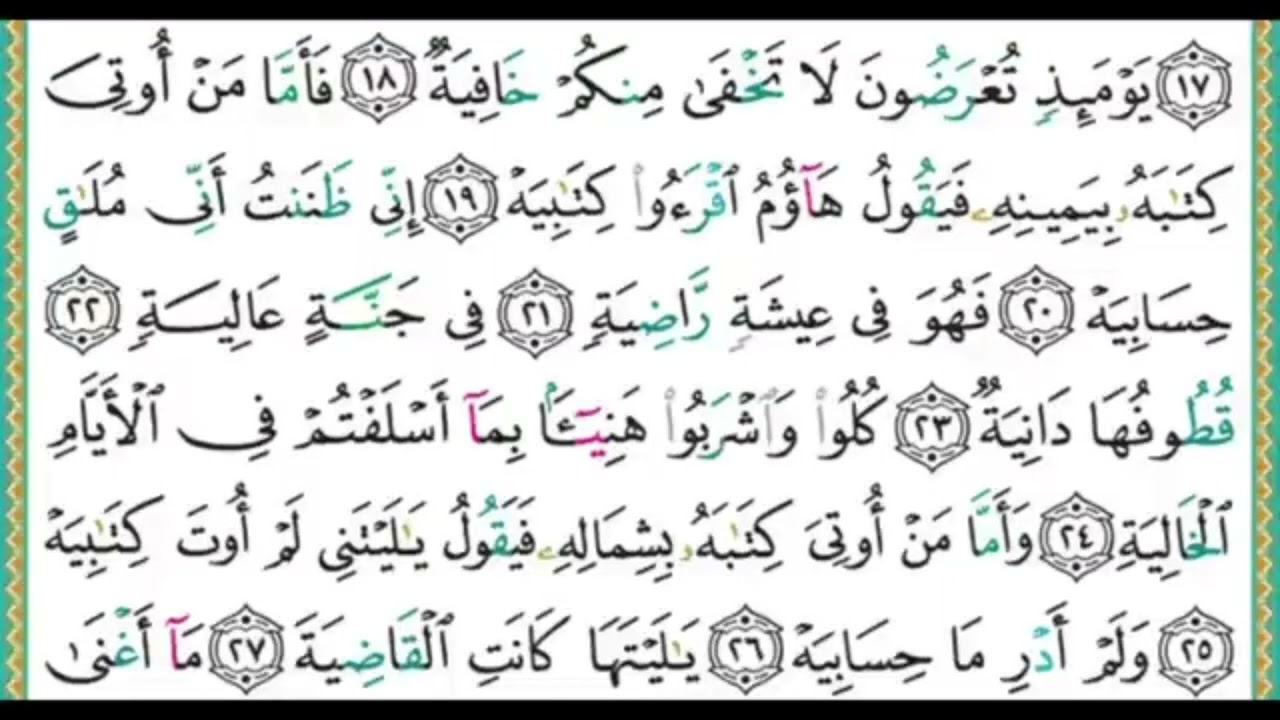 ١٧ يَوْمَئِذٍ تُعْرَضُونَ لَا تَخْفَىٰ مِنكُمْ خَافِيَةٌ ١٨ فَأَمَّا مَنْ أُوتِىَ
كِتَـٰبَهُۥ بِيَمِينِهِۦ فَيَقُولُ هَآؤُمُ ٱقْرَءُوا۟ كِتَـٰبِيَهْ ١٩ إِنِّى ظَنَنتُ أَنِّى مُلَـٰقٍ
حِسَابِيَهْ ٢٠ فَهُوَ فِى عِيشَةٍ رَّاضِيَةٍ ٢١ فِى جَنَّةٍ عَالِيَةٍ ٢٢
قُطُوفُهَا دَانِيَةٌ ٢٣ كُلُوا۟ وَٱشْرَبُوا۟ هَنِيٓـًٔۢا بِمَآ أَسْلَفْتُمْ فِى ٱلْأَيَّامِ
ٱلْخَالِيَةِ ٢٤ وَأَمَّا مَنْ أُوتِىَ كِتَـٰبَهُۥ بِشِمَالِهِۦ فَيَقُولُ يَـٰلَيْتَنِى لَمْ أُوتَ كِتَـٰبِيَهْ
٢٥ وَلَمْ أَدْرِ مَا حِسَابِيَهْ ٢٦ يَـٰلَيْتَهَا كَانَتِ ٱلْقَاضِيَةَ ٢٧ مَآ أَغْنَىٰ